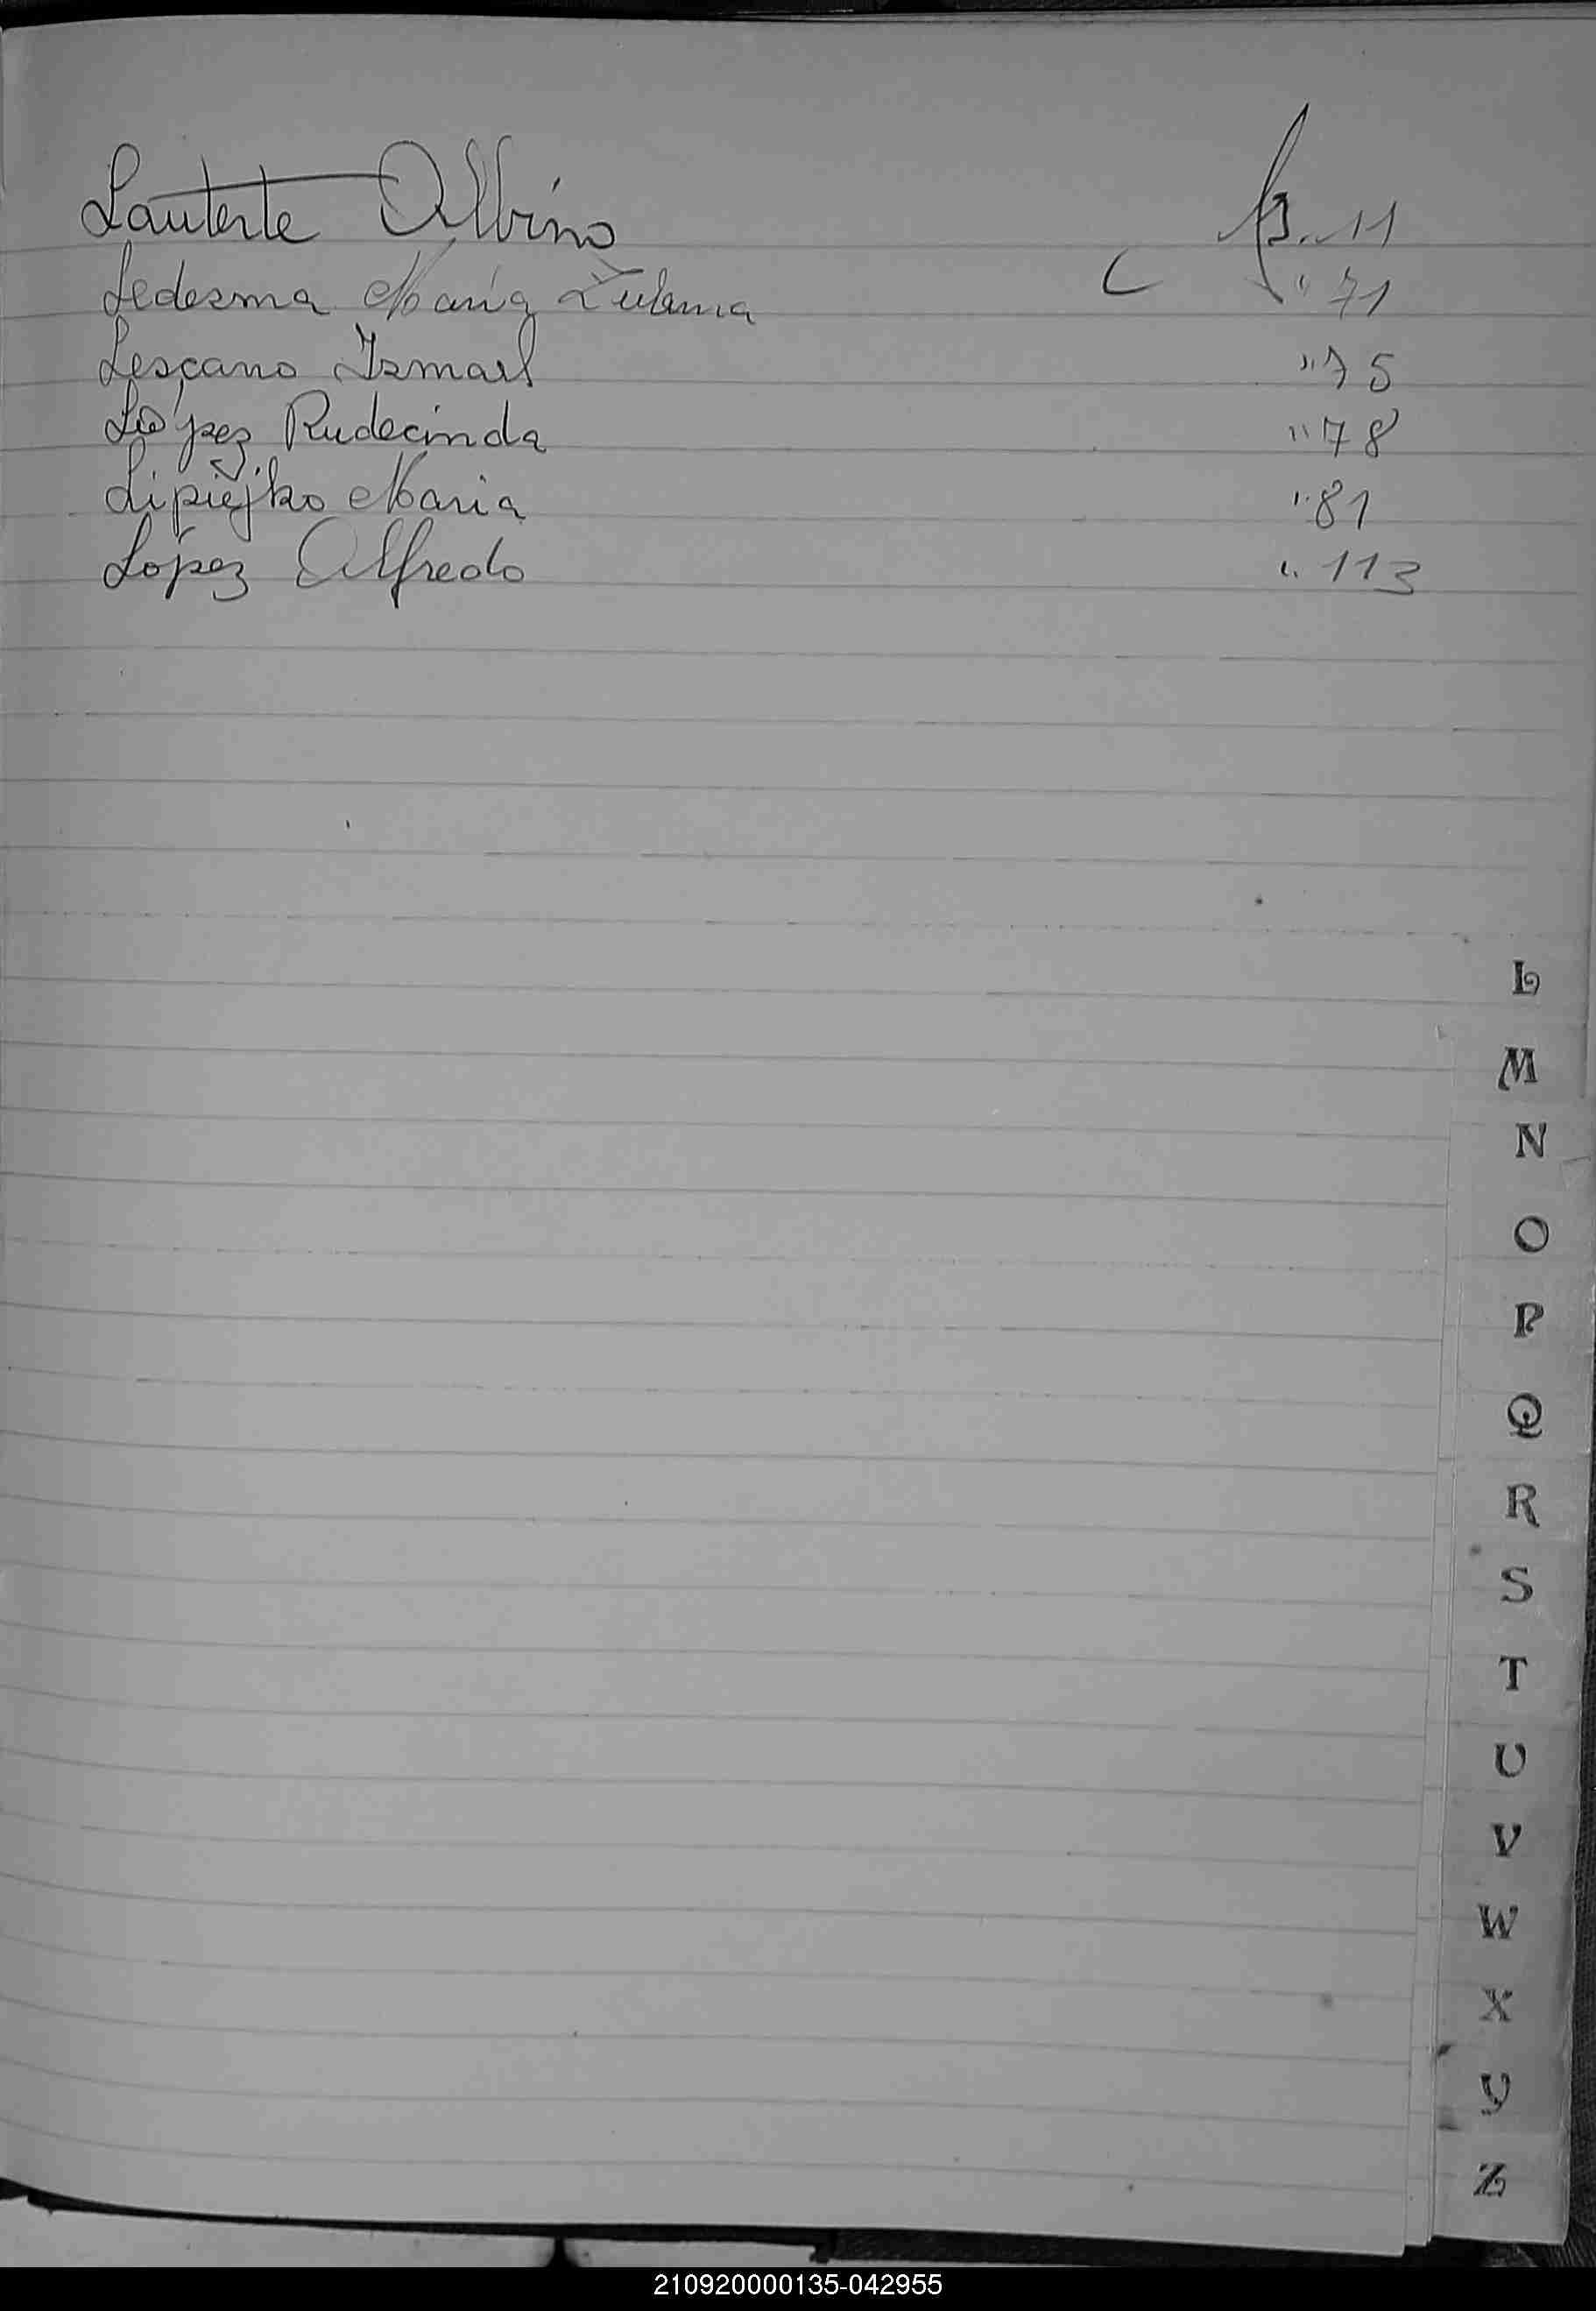 Lauterte Albino 11
Ledesma Maria Zulema " 71
Lescano Ismael " 75
López Rudecinda " 78
Lipiejko Maria " 81
López Alfredo " 113
L
M
N
O
P
Q
R
S
T
U
V
W
X
Y
Z
210920000135-042955